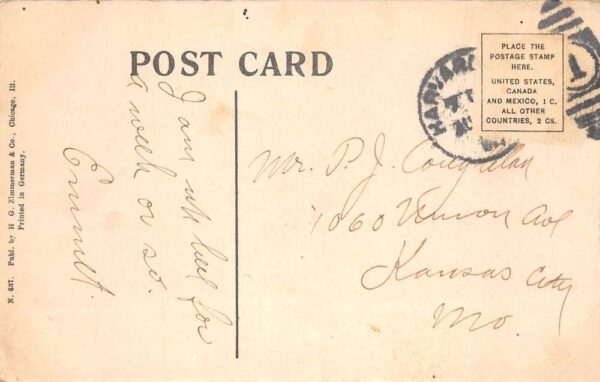 POST CARD
PLACE THE
POSTAGE STAMP
HERE.
UNITED STATES,
CANADA
AND MEXICO, 1 C.
ALL OTHER
COUNTRIES, 2 CS.
HARVARD
1
I am up here for
a week or so.
Emmett.
Mr. P. J.
1060 Vernon Ave
Kansas City
Mo.
N. 637. Publ. by H. G. Zimmerman & Co., Chicago, Ill.
Printed in Germany.